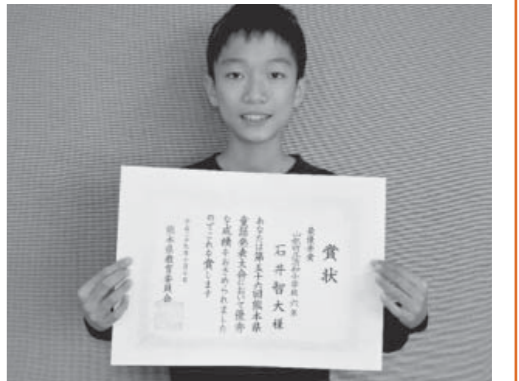 賞状
最優秀賞
小学校 六年
石井智大様
あなたは第五十六回熊本県
童話発表大会において優秀
な成績をおさめられました
のでこれを賞します
熊本県教育委員会